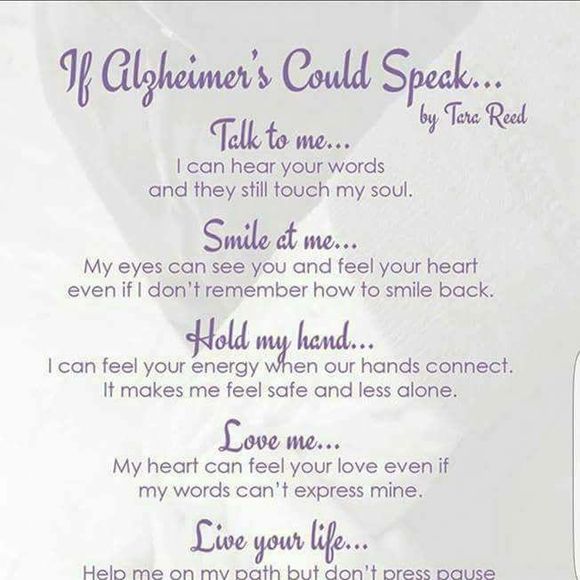 If Alzheimer's Could Speak...
by Tara Reed
Talk to me...
I can hear your words
and they still touch my soul.
Smile at me...
My eyes can see you and feel your heart
even if I don't remember how to smile back.
Hold my hand...
I can feel your energy when our hands connect.
It makes me feel safe and less alone.
Love me...
My heart can feel your love even if
my words can't express mine.
Live your life...
Help me on my path but don't press pause